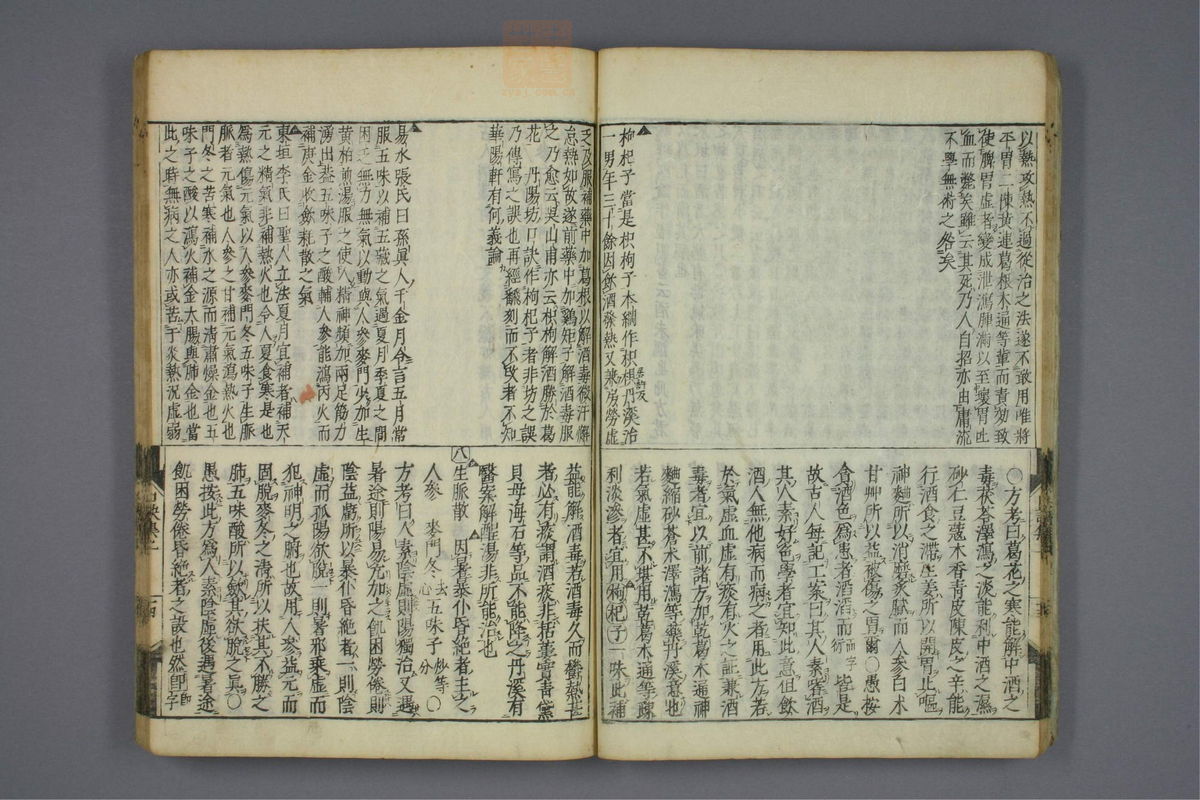 以熱攻熱不過從治之法遂不敢用唯將
平胃二陳黃連葛根木通等輩而責効致
使脾胃虛者變成泄瀉腫滿以至嘔胃吐
血而斃矣雖云其死乃人自招亦由庸流
不學無術之咎矣
枸杞子當是枳枸子本綱作枳椇丹溪治
一男年三十餘因飲酒發熱又兼房勞虛
乏乃服補藥中加葛根以解酒毒微汗懈
怠熱如故遂前藥中加鷄矩子解酒毒服
之乃愈云吳山甫亦云枳枸解酒勝於葛
花丹陽坊口訣作枸杞子者非坊之誤
乃傳寫之誤也再經翻刻而不改者不知
華陽軒有何義論
易水張氏曰孫眞人千金月令言五月常
服五味以補五藏之氣過夏月季夏之間
困乏無力無氣以動與人參麥門少加生
黃柏煎湯服之使人精神頓加兩足筋力
湧出蓋五味子之酸輔人參能瀉丙火而
補庚金收斂耗散之氣
東垣李氏曰聖人立法夏月宜補者補天
元之精氣非補熱火也令人夏食寒是也
爲熱傷元氣以人參麥門冬五味子生脈
脈者元氣也人參之甘補元氣瀉熱火也
門冬之苦寒補水之源而清肅燥金也五
味子之酸以瀉火補金大腸與肺金也當
此之時無病之人亦或苦于炎熱況虛弱
〇方考曰葛花之寒能解中酒之
毒茯苓澤瀉之淡能利中酒之濕
砂仁豆蔲木香青皮陳皮之辛能
行酒食之滯生姜所以開胃止嘔
神麯所以消磨炙膩而人參白朮
甘艸所以益被傷之胃爾〇愚按
貪酒色爲愚者酒酒而字衍皆是
故古人每記工案曰其人素嗜酒
其人素好色學者宜知此意但飲
酒人無他病而病之者用此方若
於氣虛血虛有痰有火之証兼酒
毒者宜以前諸方加乾葛木通神
麯縮砂蒼朮澤瀉等藥丹溪意也
若氣虛甚不堪用乾葛木通等疎
利淡滲者宜用枸杞子一味此補
益能解酒毒若酒毒久而欝熱甚
者必有痰謂酒痰非栝蔞實靑黛
貝母海石等品不能降之丹溪有
醫案解酲湯非所能治也
八生脈散 因暑暴仆昏絶者主之
人參 麥門冬去心 五味子炒等分 〇
方考曰人素陰虛則陽獨治又遇
暑途則陽易亢加之飢困勞倦則
陰益虧所以暴仆昏絶者一則陰
虛而孤陽欲脫一則暑邪乘虛而
犯神明之腑也故用人參益元而
固脫麥冬之淸所以扶其不勝之
肺五味酸所以斂其欲脫之眞〇
愚按此方爲人素陰虛後遇暑途
飢困勞倦昏絶者之設也然卽字